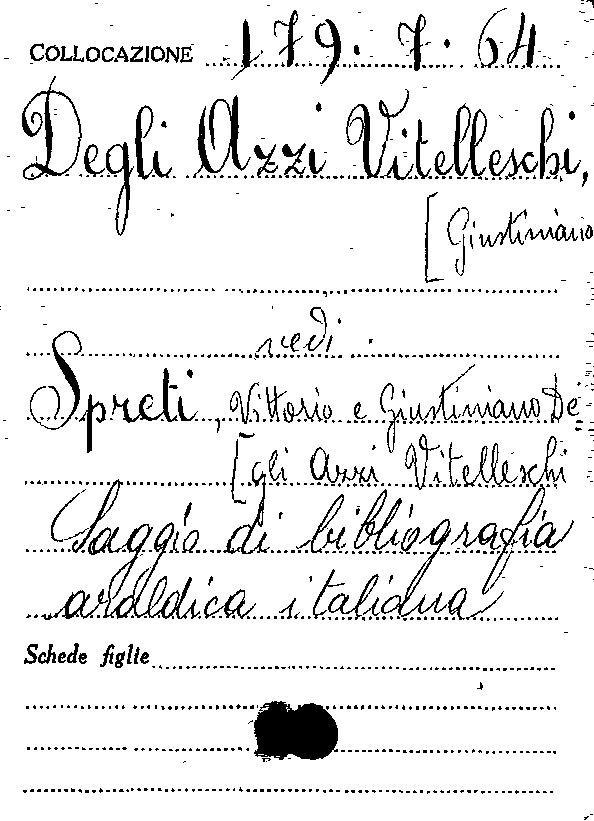 COLLOCAZIONE 179.7.64
Degli Azzi Vitelleschi,
[Giustiniano
vedi
Spreti, Vittorio e Giustiniano De
[gli Azzi Vitelleschi
Saggio di bibliografia
araldica italiana
Schede figlie